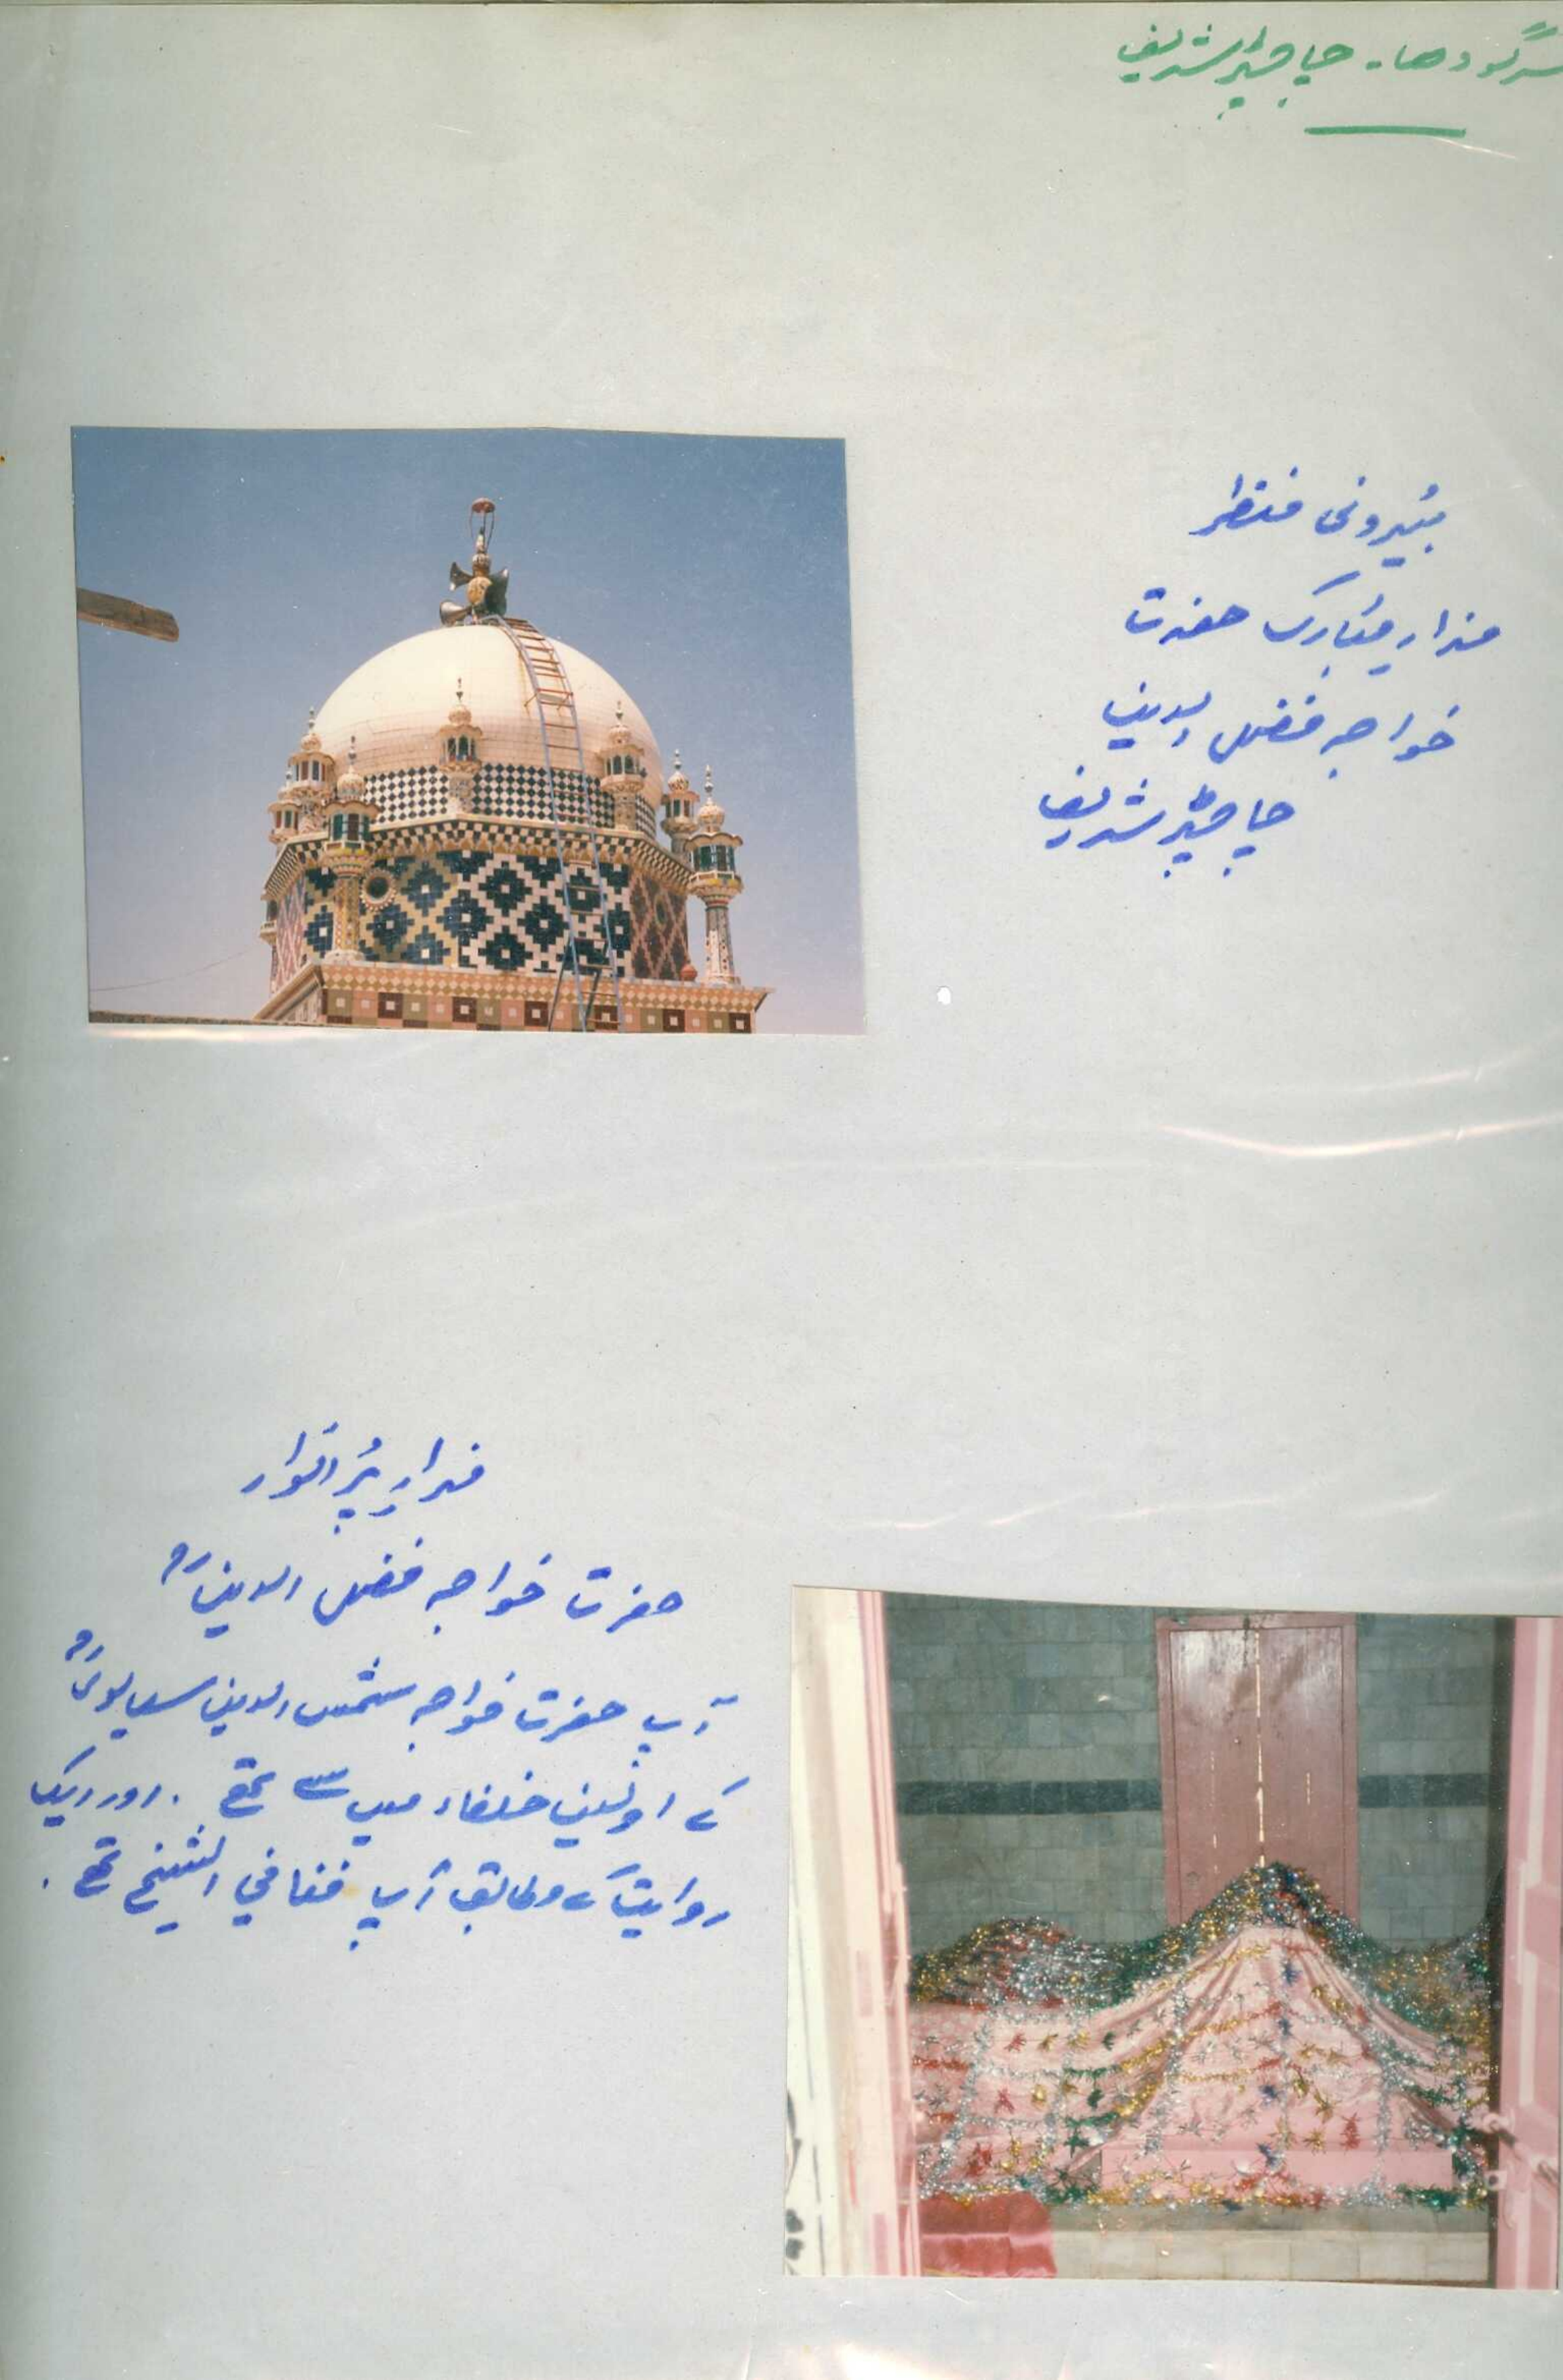 سرگودھا۔ چاچڑ شریف
بیُرونی منظر
مزار مُبارک حضرت
خواجہ فضل الدین
چاچڑ شریف
مزارِ پُر انوار
حضرت خواجہ فضل الدینؒ
آپ حضرت خواجہ شمس الدین سیالویؒ
کے اولین خلفاء میں سے تھے ۔ اور ایک
روایت کے مطابق آپ فنا فی الشیخ تھے ۔